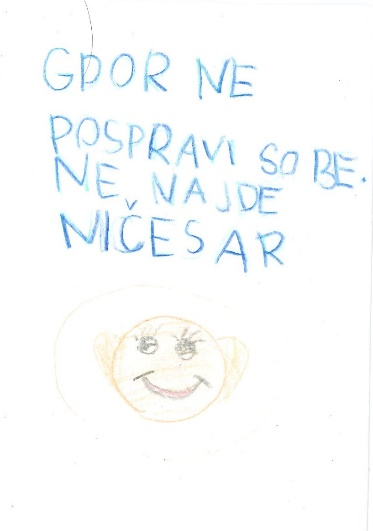 GDOR NE
POSPRAVI SOBE.
NE NAJDE
NIČESAR